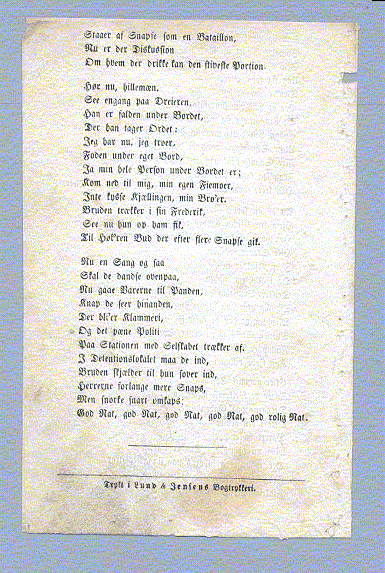 Staaer af Snapse som en Bataillon,
Nu er der Diskussion
Om hvem der drikke kan den stiveste Portion.
Hør nu, hillemæn,
See engang paa Dreieren,
Han er falden under Bordet,
Der han tager Ordet:
Jeg har nu, jeg troer,
Foden under eget Bord,
Ja min hele Person under Bordet er;
Kom ned til mig, min egen Fiemoer,
Inte kysse Kjællingen, min Bro'er.
Bruden trækker i sin Frederik,
See nu hun op ham fik,
Til Høk'ren Bud der efter flere Snapse gik.
Nu en Sang og saa
Skal de dandse ovenpaa,
Nu gaae Varerne til Panden,
Knap de seer hinanden,
Der bli'er Klammeri,
Og det pæne Politi
Paa Stationen med Selskabet trækker af.
I Detentionslokalet maa de ind,
Bruden skjælder til hun sover ind,
Herrerne forlange mere Snaps,
Men snorke snart omkaps:
God Nat, god Nat, god Nat, god Nat, god rolig Nat.
Trykt i Lund & Jensens Bogtrykkeri.